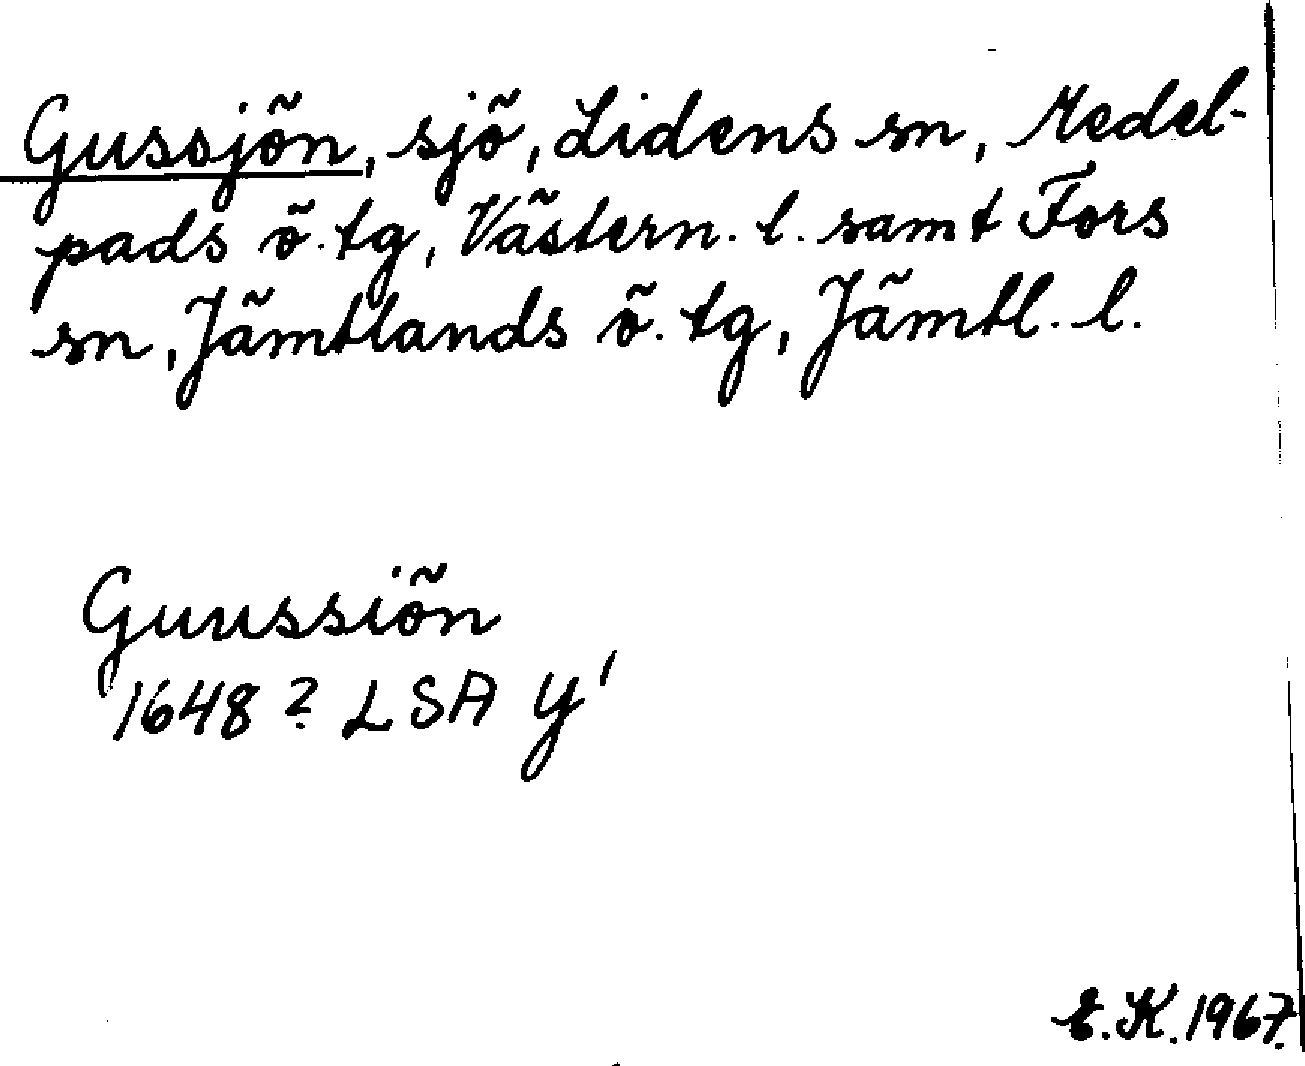 Gussjön, sjö, Lidens sn, Medel-
pads ö. tg, Västern. l. samt Fors
sn, Jämtlands ö. tg, Jämtl. l.
Guussiön
1648? LSA Y'
E.K. 1967.